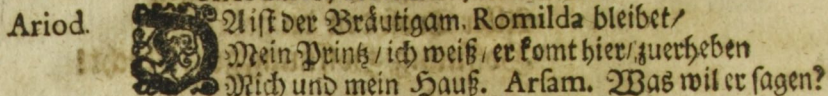 Ariod. DAist der Bräutigam, Romilda bleibet/
Mein Printz/ ich weiß/ er komt hier/ zuerheben
Mich und mein Hauß. Arsam. Was wil er sagen?